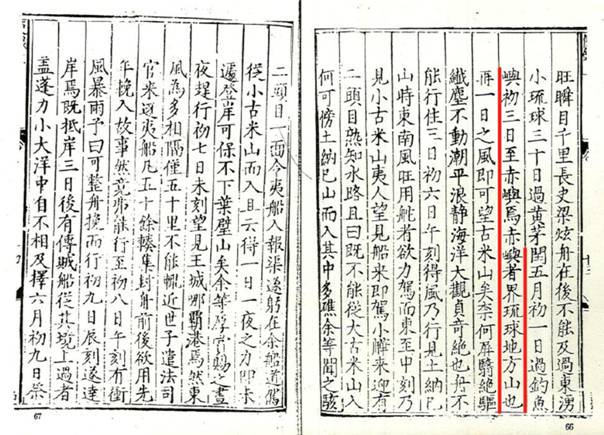 旺瞬目千里長史梁炫舟在後不能及過東湧
小琉球三十日過黃茅閏五月初一日過釣魚
嶼初三日至赤嶼焉赤嶼者界琉球地方山也
再一日之風即可望古米山矣奈何屏翳絕驅
纖塵不動潮平浪靜海洋大觀真奇絕也舟不
能行住三日初六日午刻得風乃行見土納巳
山時東南風旺用舵者欲力駕而東至申刻乃
見小古米山夷人望見船來即駕小來迎有
二頭目熟知水路且曰既不能從大古米山入
何可傍土納巳山而入其中多礁余等聞之駭
66
二頭目一面令夷船入報渠遂躬在余船道駕
從小古米山而入且云得一日一夜之力即未
遽登岸可保不下葉壁山矣余等厚賞賜之晝
夜趕行初七日未刻望見王城那覇港焉然東
風為多相隔僅五十里不能輒近世子遣法司
官來迎夷船凡五十餘艘集封舟前後欲用先
年挽入故事然竟弗能行至初八日午刻有衝
風暴雨予曰可整舟挽而行初九日辰刻遂達
岸焉既抵岸三日後有傳賊船從其境上過者
蓋蓬力小大洋中自不相及擇六月初九日祭
67